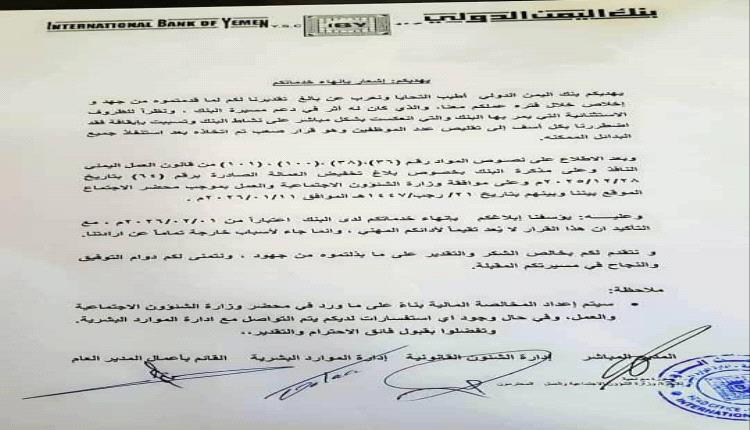 بنك اليمن الدولي
INTERNATIONAL BANK OF YEMEN Y.S.C
IBY
يهديكم: إشعار بإنهاء خدماتكم
يهديكم بنك اليمن الدولي أطيب التحايا ونعرب عن بالغ تقديرنا لكم لما قدمتموه من جهد و
إخلاص خلال فتره عملكم معنا، والذي كان له أثر في دعم مسيرة البنك ، ونظراً للظروف
الاستثنائية التي يمر بها البنك والتي انعكست بشكل مباشر على نشاط البنك وتسببت بإيقافة فقد
اضطررنا بكل أسف إلى تقليص عدد الموظفين وهو قرار صعب تم اتخاذه بعد استنفاذ جميع
البدائل الممكنه.
وبعد الاطلاع على نصوص المواد رقم (٣٦)،(٣٨)،(١٠٠)،(١٠١) من قانون العمل اليمني
النافذ وعلى مذكرة البنك بخصوص بلاغ تخفيض العمالة الصادرة برقم (٦٤) بتاريخ
٢٠٢٥/١٢/٢٨م وعلى موافقة وزارة الشئوون الاجتماعية والعمل بموجب محضر الاجتماع
الموقع بيننا وبينهم بتاريخ ٢١/ رجب/١٤٤٧هـ الموافق ٢٠٢٦/٠١/١١م .
وعليـــه: يؤسفنا إبلاغكم بإنهاء خدماتكم لدى البنك اعتباراً من ٢٠٢٦/٠٢/٠١م ، مع
التأكيد ان هذا القرار لا يُعد تقيماً لأدائكم المهني ، وانما جاء لأسباب خارجة تماماً عن ارادتنا.
و نتقدم لكم بخالص الشكر والتقدير على ما بذلتموه من جهود ، ونتمنى لكم دوام التوفيق
والنجاح في مسيرتكم المقبلة.
ملاحظة:
• سيتم إعداد المخالصة المالية بناءً على ما ورد في محضر وزارة الشئوون الاجتماعية
والعمل، وفي حال وجود اي استفسارات لديكم يتم التواصل مع ادارة الموارد البشرية.
وتفضلوا بقبول فائق الاحترام والتقدير،،
المدير المباشر إدارة الشئون القانونية إدارة الموارد البشرية القائم بأعمال المدير العام
وزارة الشؤون الاجتماعية والعمل المحترمون
HEAD OFFICE
INTERNATIONAL